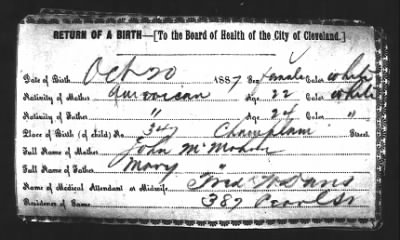 RETURN OF A BIRTH—[To the Board of Health of the City of Cleveland.]
Date of Birth Oct 20 1887 Sex female Color white
Nativity of Mother American Age 22 Color white
Nativity of Father " Age 24 Color "
Place of Birth (of child) No. 347 Champlain Street
Full Name of Mother John McMahon
Full Name of Father Mary "
Name of Medical Attendant or Midwife, Fred W Davis
Residence of Same 387 Pearl St